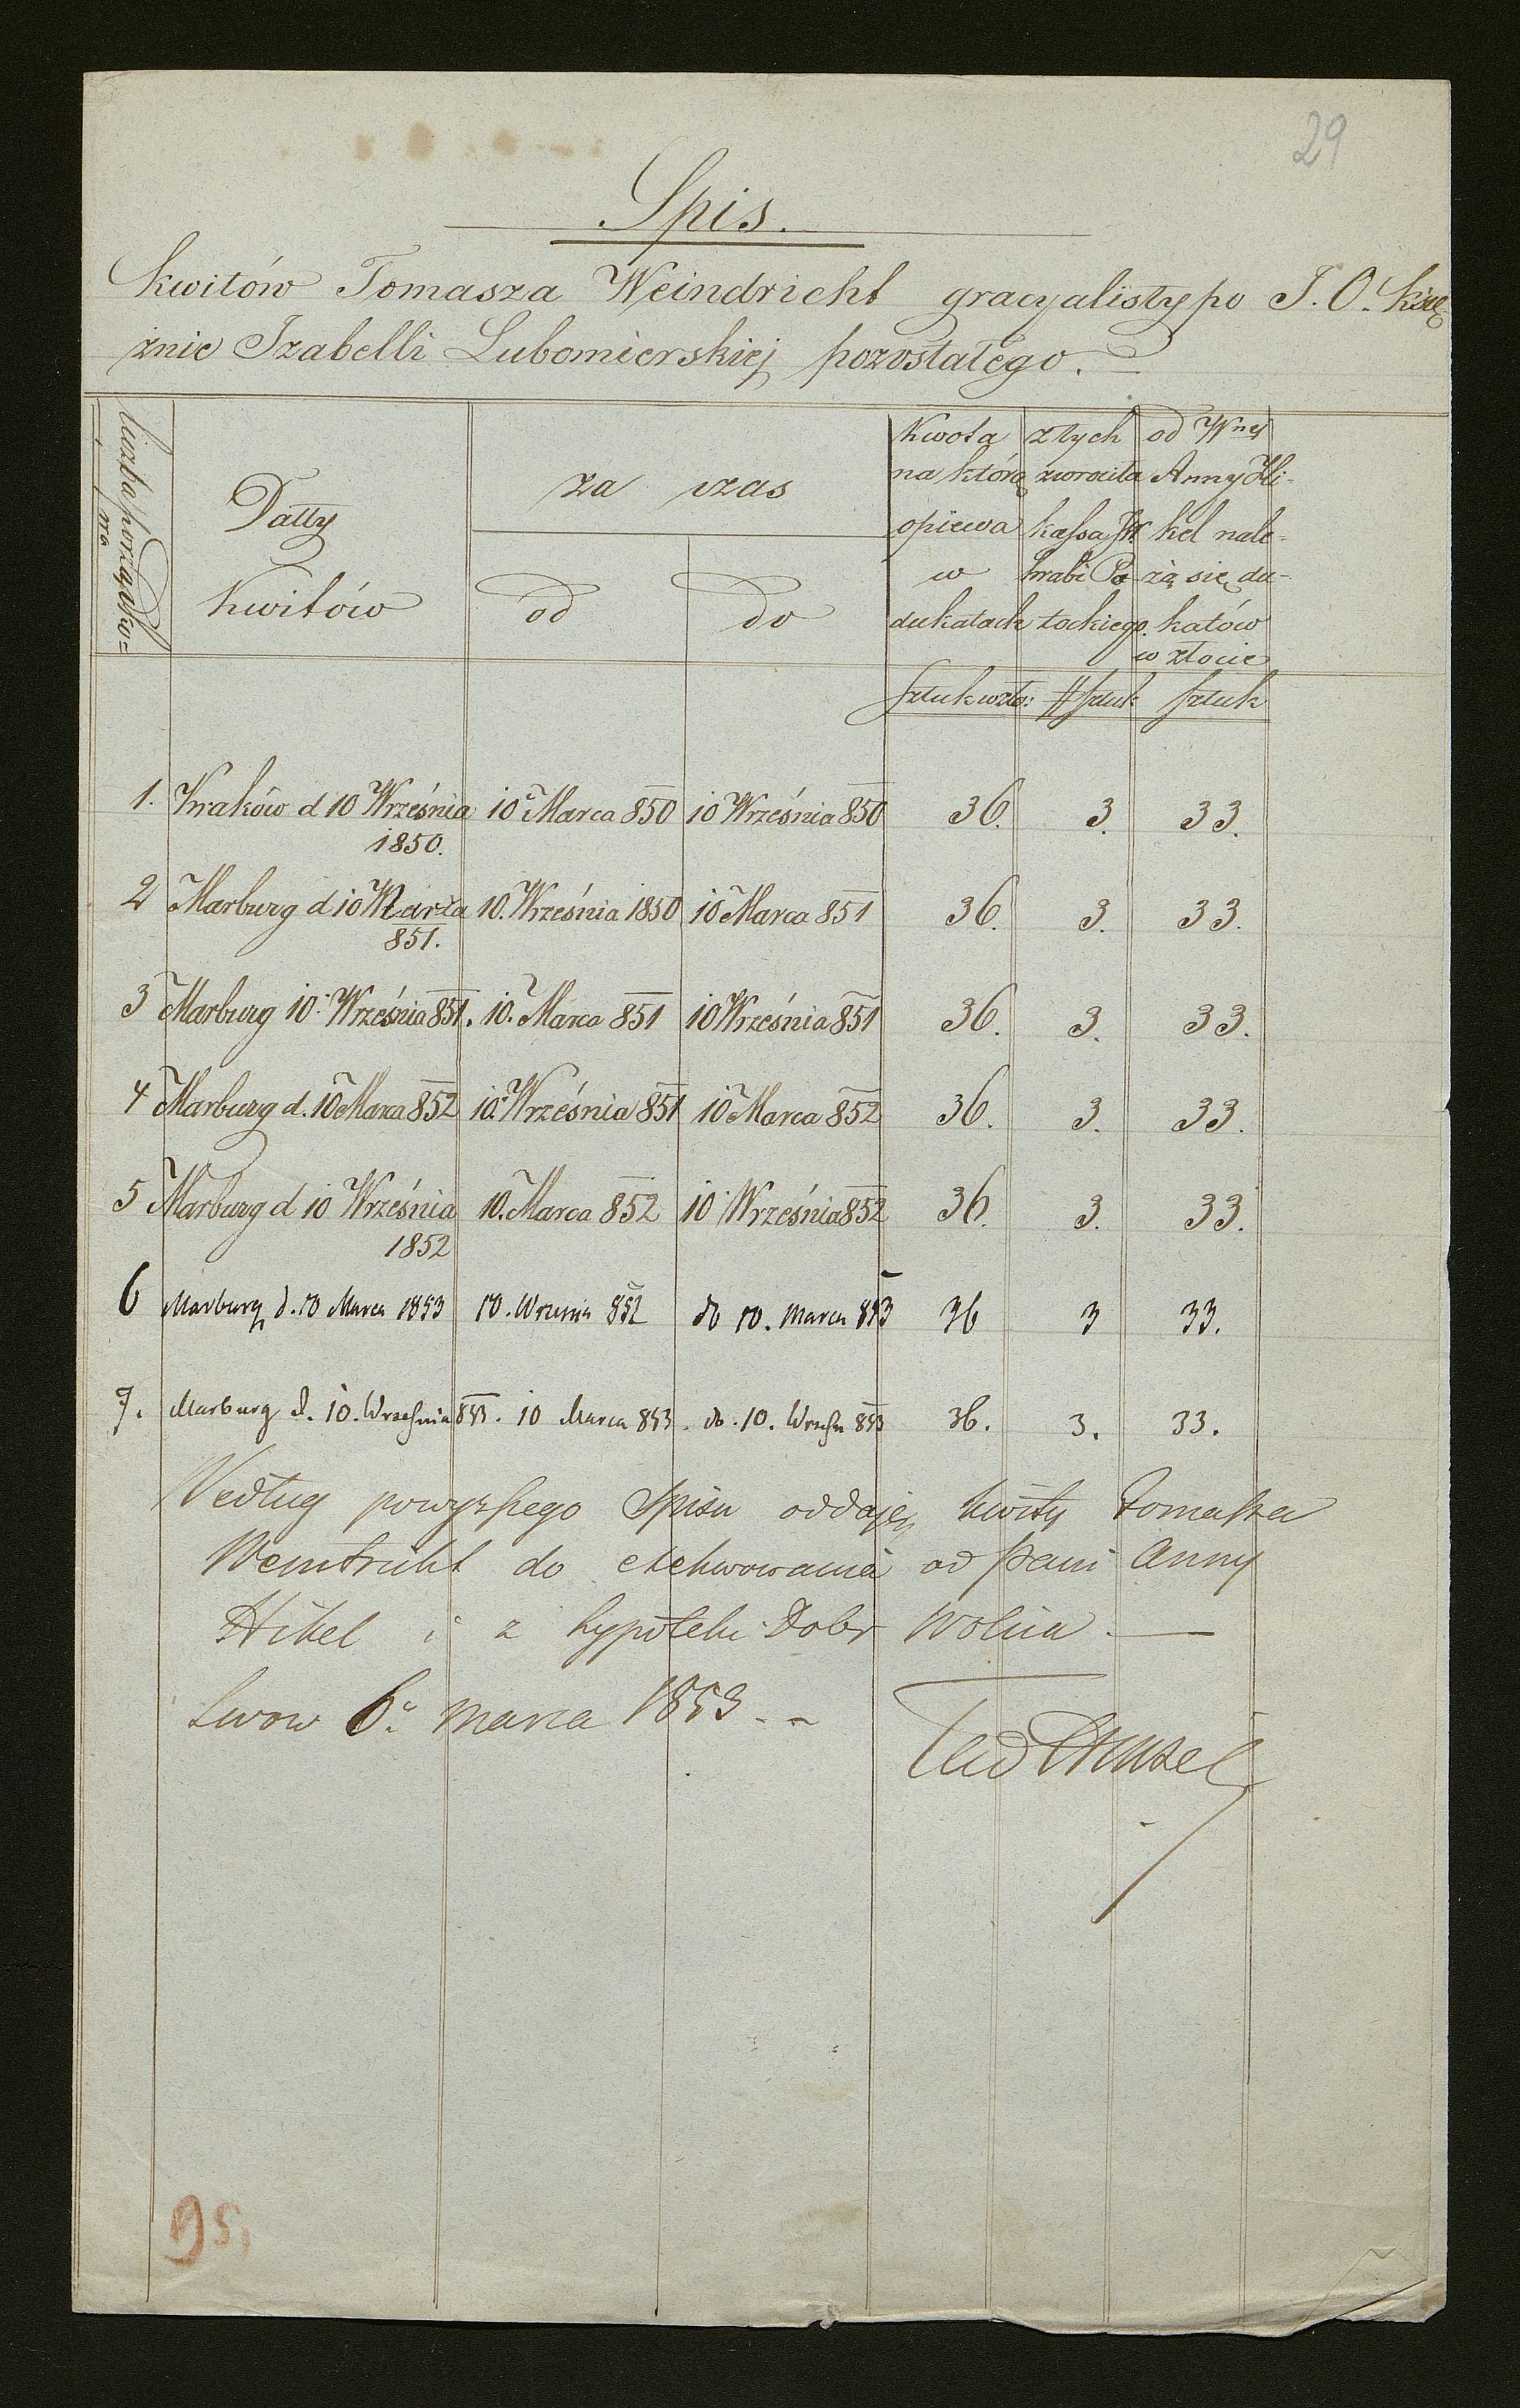 29
Spis.
kwitów Tomasza Weindricht gracyalisty po J. O. Księ
żnie Izabelli Lubomierskiej pozostałego.
liczba porządko=
wa
Datty
kwitów
za czas
od
do
Kwota
na którą
opiewa
w
dukatach
z tych
zwrociła
kassa JW
hrabi Po
tockiego.
od Wnej
Anny Hi-
kel nale-
żą się du-
katów
w złocie
sztuk wzło:
# sztuk
sztuk
1. Kraków d 10 Września 1850. 10 Marca 850 10 Września 850 36. 3. 33.
2 Marburg d 10 Marca 851. 10. Września 1850 10 Marca 851 36. 3. 33.
3 Marburg 10 Września 851. 10. Marca 851 10 Września 851 36. 3. 33.
4 Marburg d. 10 Marca 852 10. Września 851 10 Marca 852 36. 3. 33.
5 Marburg d 10 Września 1852 10. Marca 852 10 Września 852 36. 3. 33.
6 Marburg d. 10 Marca 1853 10. Wrzesnia 852 do 10. Marca 853 36 3 33.
7. Marburg d. 10. Wrzesnia 853. 10 Marca 853. do. 10. Wrześn 853 36. 3. 33.
Według powyzszego Spisu oddaję kwity Tomasza
Weindricht do exekwowania od Pani Anny
Hikel i z hypoteki Dobr Wolica.
Lwow 6o marca 1853
95,